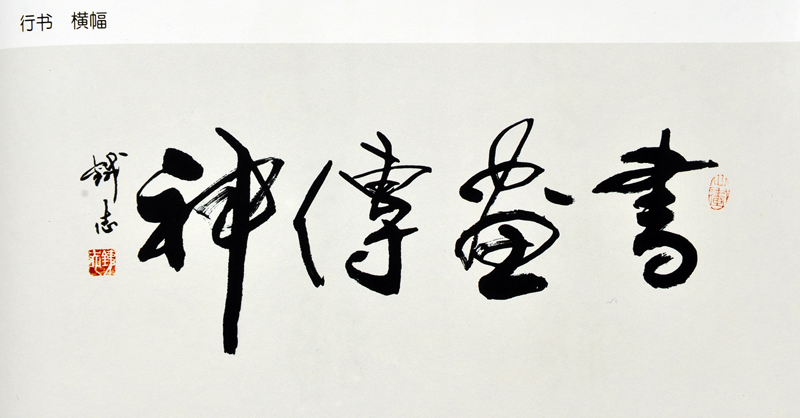 行书 横幅
書畫傳神
鐵志